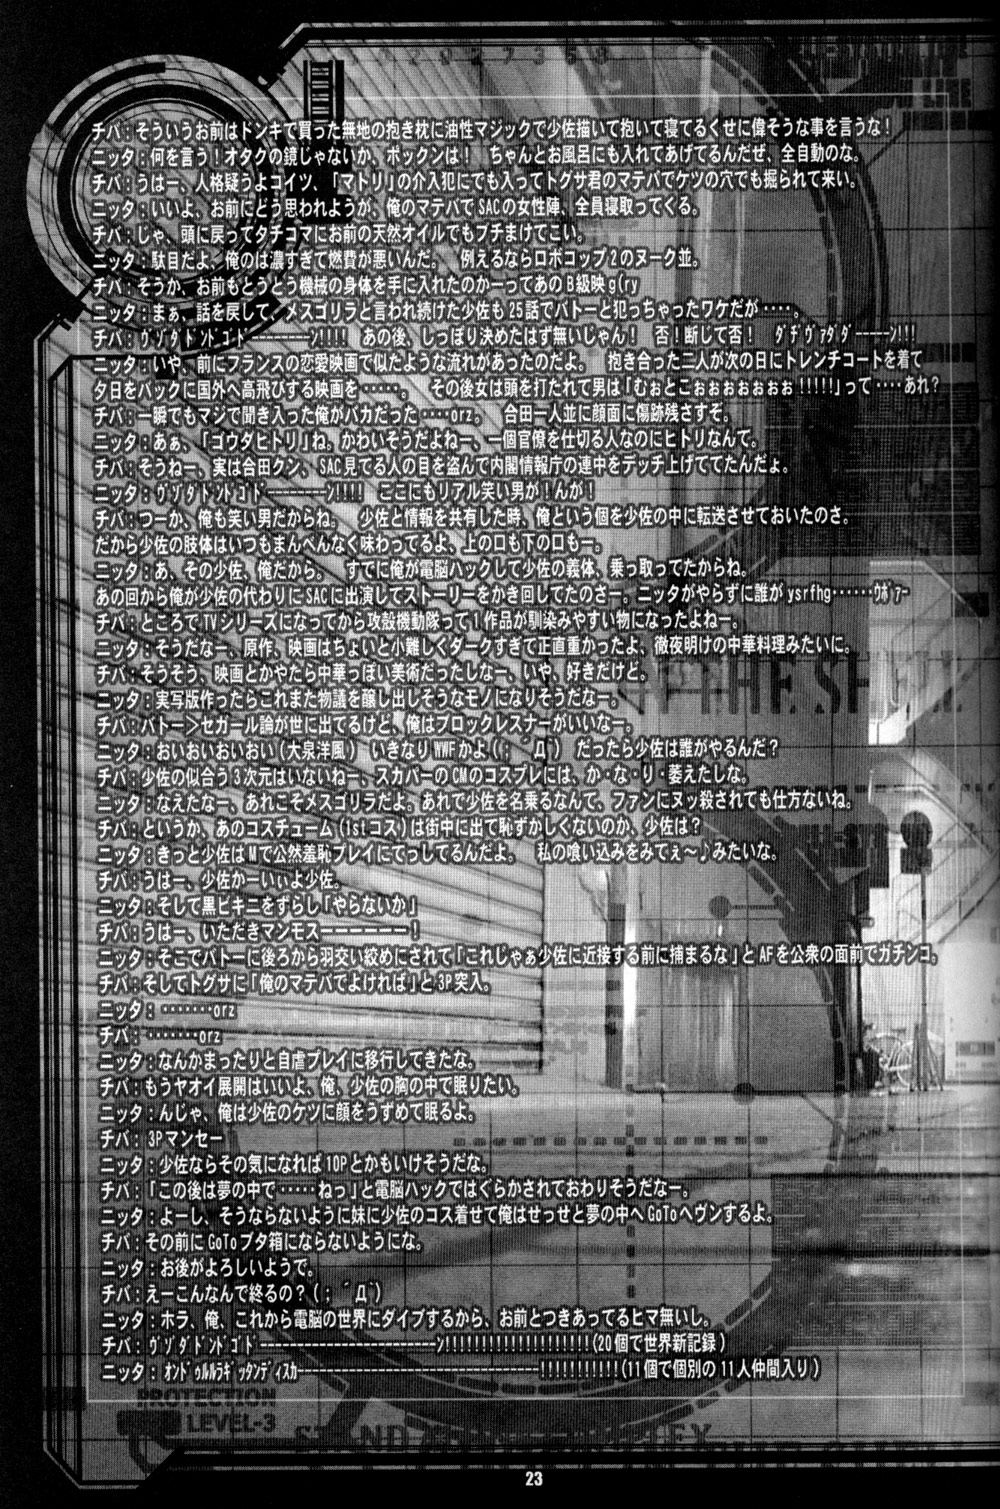 チバ：そういうお前はドンキで買った無地の抱き枕に油性マジックで少佐描いて抱いて寝てるくせに偉そうな事を言うな！
ニッタ：何を言う！オタクの鏡じゃないか、ボックンは！　ちゃんとお風呂にも入れてあげてるんだぜ、全自動のな。
チバ：うはー、人格疑うよコイツ、「マトリ」の介入犯にでも入ってトグサ君のマテバでケツの穴でも掘られて来い。
ニッタ：いいよ、お前にどう思われようが、俺のマテバでSACの女性陣、全員寝取ってくる。
チバ：じゃ、頭に戻ってタチコマにお前の天然オイルでもブチまけてこい。
ニッタ：駄目だよ、俺のは濃すぎて燃費が悪いんだ。　例えるならロボコップ2のヌーク並。
チバ：そうか、お前もとうとう機械の身体を手に入れたのかーってあのB級映g(ry
ニッタ：まぁ、話を戻して、メスゴリラと言われ続けた少佐も25話でバトーと犯っちゃったワケだが‥‥。
チバ：ｳｿﾞﾀﾞﾄﾞﾝﾄﾞｺﾞﾄﾞーーーーーーーﾝ!!!!　あの後、しっぽり決めたはず無いじゃん！　否！断じて否！　ﾀﾞﾁﾞｳﾞｧﾀﾞﾀﾞーーーーーﾝ!!!
ニッタ：いや、前にフランスの恋愛映画で似たような流れがあったのだよ。　抱き合った二人が次の日にトレンチコートを着て
夕日をバックに国外へ高飛びする映画を‥‥‥。　その後女は頭を打たれて男は「むぉとこぉぉぉぉぉぉぉ!!!!!」って‥‥あれ？
チバ：一瞬でもマジで聞き入った俺がバカだった‥‥orz。　合田一人並に顔面に傷跡残さすぞ。
ニッタ：あぁ、「ゴウダヒトリ」ね。かわいそうだよねー、一個官僚を仕切る人なのにヒトリなんて。
チバ：そうねー、実は合田クン、SAC見てる人の目を盗んで内閣情報庁の連中をデッチ上げててたんだょ。
ニッタ：ｳﾞｿﾞﾀﾞﾄﾞﾝﾄﾞｺﾞﾄﾞーーーーーーーﾝ!!!!　ここにもリアル笑い男が！んが！
チバ：つーか、俺も笑い男だからね。　少佐と情報を共有した時、俺という個を少佐の中に転送させておいたのさ。
だから少佐の肢体はいつもまんべんなく味わってるよ、上の口も下の口もー。
ニッタ：あ、その少佐、俺だから。　すでに俺が電脳ハックして少佐の義体、乗っ取ってたからね。
あの回から俺が少佐の代わりにSACに出演してストーリーをかき回してたのさー。ニッタがやらずに誰がysrfhg‥‥‥ｳﾎﾞｧｰ
チバ：ところでTVシリーズになってから攻殻機動隊って1作品が馴染みやすい物になったよねー。
ニッタ：そうだなー、原作、映画はちょいと小難しくダークすぎて正直重かったよ、徹夜明けの中華料理みたいに。
チバ：そうそう、映画とかやたら中華っぽい美術だったしなー、いや、好きだけど。
ニッタ：実写版作ったらこれまた物議を醸し出しそうなモノになりそうだなー。
チバ：バトー＞セガール論が世に出てるけど、俺はブロックレスナーがいいなー。
ニッタ：おいおいおいおい(大泉洋風)　いきなりWWFかよ(；゜Д゜)　だったら少佐は誰がやるんだ？
チバ：少佐の似合う3次元はいないねー、スカパーのCMのコスプレには、か・な・り・萎えたしな。
ニッタ：なえたなー、あれこそメスゴリラだよ。あれで少佐を名乗るなんて、ファンにヌッ殺されても仕方ないね。
チバ：というか、あのコスチューム(1stコス)は街中に出て恥ずかしくないのか、少佐は？
ニッタ：きっと少佐はMで公然羞恥プレイにてっしてるんだよ。　私の喰い込みをみてぇ～♪みたいな。
チバ：うはー、少佐かーいぃよ少佐。
ニッタ：そして黒ビキニをずらし「やらないか」
チバ：うはー、いただきマンモスーーーーーーー！
ニッタ：そこでバトーに後ろから羽交い絞めにされて「これじゃぁ少佐に近接する前に捕まるな」とAFを公衆の面前でガチンコ。
チバ：そしてトグサに「俺のマテバでよければ」と3P突入。
ニッタ：‥‥‥‥orz
チバ：‥‥‥‥orz
ニッタ：なんかまったりと自虐プレイに移行してきたな。
チバ：もうヤオイ展開はいいよ、俺、少佐の胸の中で眠りたい。
ニッタ：んじゃ、俺は少佐のケツに顔をうずめて眠るよ。
チバ：3Pマンセー
ニッタ：少佐ならその気になれば10Pとかもいけそうだな。
チバ：「この後は夢の中で‥‥‥ねっ」と電脳ハックではぐらかされておわりそうだなー。
ニッタ：よーし、そうならないように妹に少佐のコス着せて俺はせっせと夢の中へGoToヘヴンするよ。
チバ：その前にGoToブタ箱にならないようにな。
ニッタ：お後がよろしいようで。
チバ：えーこんなんで終るの？(；゜Д゜)
ニッタ：ホラ、俺、これから電脳の世界にダイブするから、お前とつきあってるヒマ無いし。
チバ：ｳﾞｿﾞﾀﾞﾄﾞﾝﾄﾞｺﾞﾄﾞーーーーーーーーーーーーーーーーーーーーーーーーﾝ!!!!!!!!!!!!!!!!!!!!(20個で世界新記録)
ニッタ：ｵﾝﾄﾞｩﾙﾙﾗｷﾞｯﾀﾝﾃﾞｨｽｶーーーーーーーーーーーーーーーーーーーーーーーーーーーーーーーー!!!!!!!!!!!(11個で個別の11人仲間入り)
PROTECTION
LEVEL-3
23